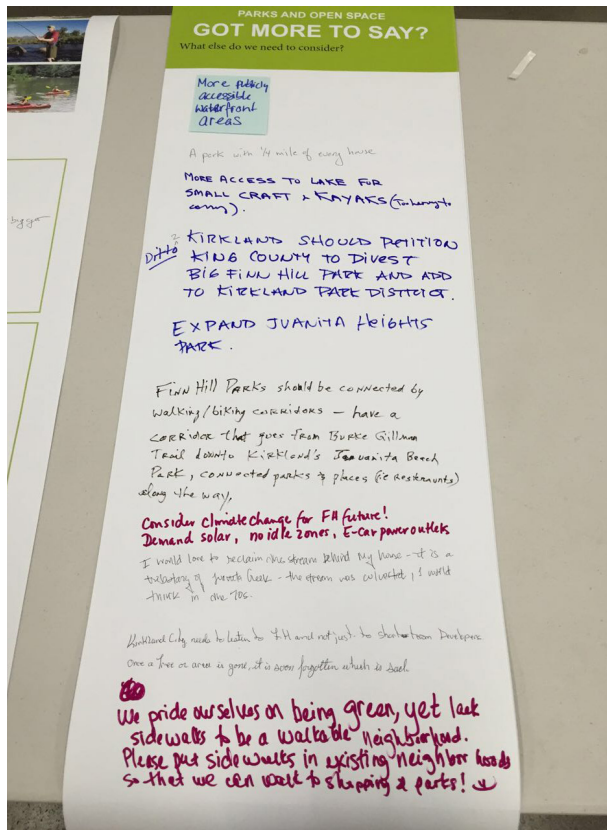 PARKS AND OPEN SPACE
GOT MORE TO SAY?
What else do we need to consider?
More publicly
accessible
waterfront
areas
A park with 1/4 mile of every house
MORE ACCESS TO LAKE FOR
SMALL CRAFT & KAYAKS (Too heavy to
carry).
Ditto
KIRKLAND SHOULD PETITION
KING COUNTY TO DIVEST
BIG FINN HILL PARK AND ADD
TO KIRKLAND PARK DISTRICT.
EXPAND JUANITA HEIGHTS
PARK.
FINN Hill PARKS should be connected by
walking/biking corridors – have a
corridor that goes from BURKE Gillman
Trail down to Kirkland's Juanita Beach
Park, connected parks & places (ie Restraunts)
along the way.
Consider climate change for FH future!
Demand solar, no idle zones, E-car power outlets
I would love to reclaim the stream behind my home – it is a
tributary of Creek – the stream was culverted, I would
think in the 70s.
Kirkland City needs to listen to FH and not just to
Once a tree or area is gone, it is soon forgotten which is sad.
We pride ourselves on being green, yet lack
sidewalks to be a walkable neighborhood.
Please put sidewalks in existing neighborhoods
so that we can walk to shopping & parks!